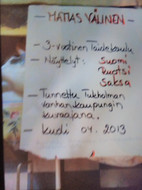 - MATIAS VÄLINEN -
- 3-vuotinen Taidekoulu
- Näyttelyt: Suomi
Ruotsi
Saksa
- Tunnettu Tukholman
vanhankaupungin
kuvaajana.
- Kudi 04. 2013